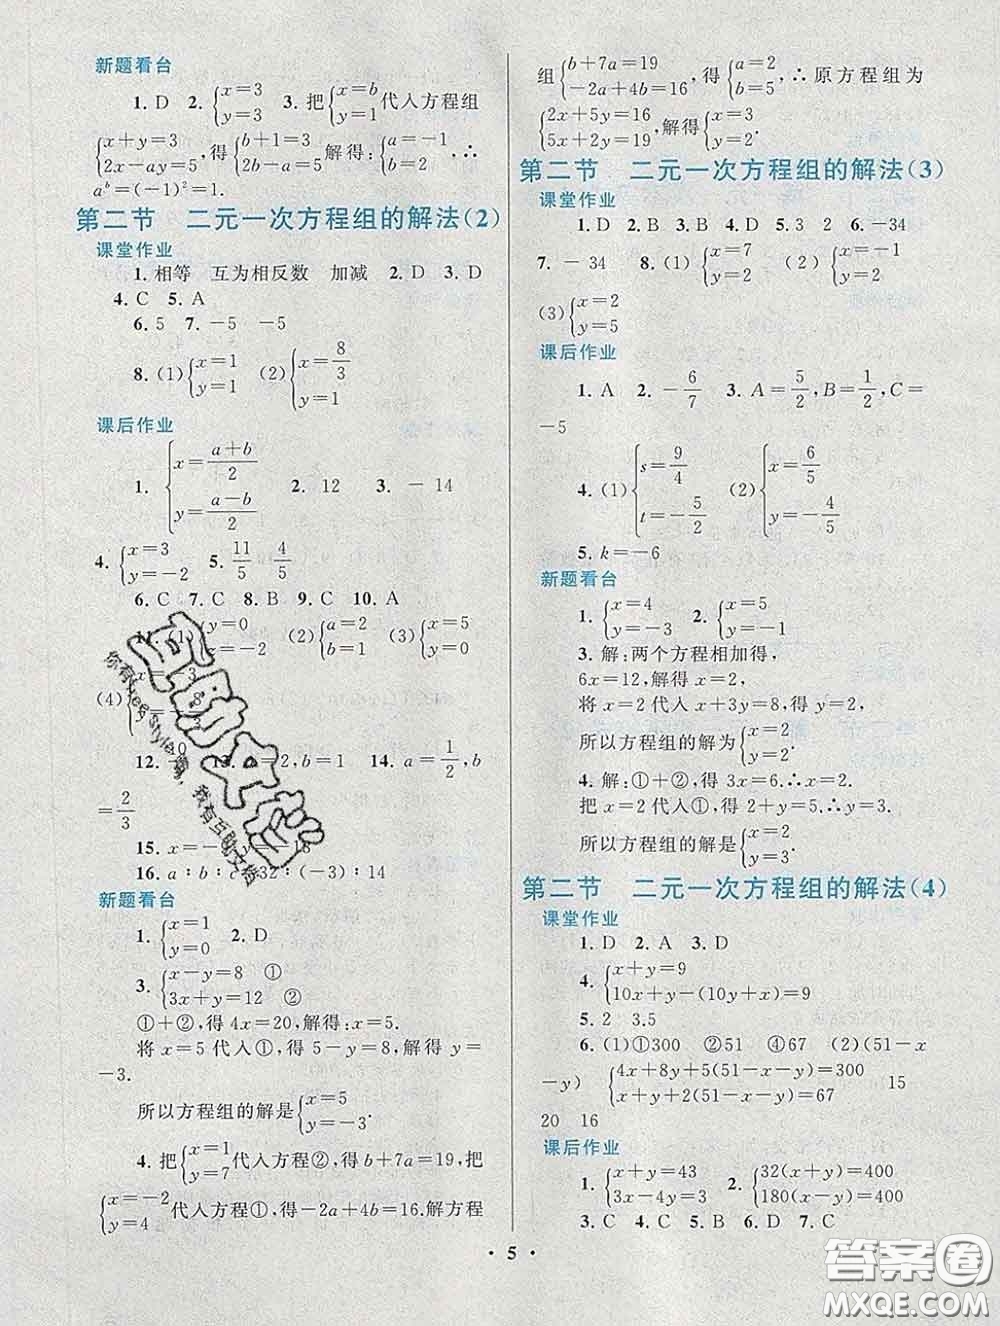 新题看台
1. D 2. {x=3 y=3 3. 把{x=b y=1代入方程组
{x+y=3 2x-ay=5, 得{b+1=3 2b-a=5解得:{a=-1 b=2, ∴
aᵇ=(-1)²=1.
第二节 二元一次方程组的解法(2)
课堂作业
1. 相等 互为相反数 加减 2. D 3. D
4. C 5. A
6. 5 7. -5 -5
8. (1){x=1 y=1 (2){x=8/3 y=1
课后作业
1. {x=(a+b)/2 y=(a-b)/2 2. 12 3. -14
4. {x=3 y=-2 5. 11/5 4/5
6. C 7. C 8. B 9. C 10. A
y=0 =-2 (2){a=2 b=1 (3){x=5 y=0
(4)
12. ,b=1 14. a=1/2,b
=2/3
15. x=
16. a∶b∶c 32∶(-3)∶14
新题看台
1. {x=1 y=0 2. D
3. {x-y=8 ① 3x+y=12 ②
①+②,得 4x=20,解得:x=5.
将 x=5 代入①,得 5-y=8,解得 y=
-3.
所以方程组的解是{x=5 y=-3.
4. 把{x=1 y=7代入方程②,得 b+7a=19,把
{x=-2 y=4代入方程①,得-2a+4b=16.解方程
组{b+7a=19 -2a+4b=16,得{a=2 b=5,∴原方程组为
{2x+5y=16 5x+2y=19,解得{x=3 y=2.
第二节 二元一次方程组的解法(3)
课堂作业
1. D 2. B 3. B 4. D 5. 3 2 6. -34
7. -34 8. (1){x=7 y=2 (2){x=-1 y=2
(3){x=2 y=5
课后作业
1. A 2. -6/7 3. A=5/2,B=1/2,C=
-5
4. (1){s=9/4 t=-5/2 (2){x=6/5 y=-4/5
5. k=-6
新题看台
1. {x=4 y=-3 2. {x=5 y=-1
3. 解:两个方程相加得,
6x=12,解得 x=2,
将 x=2 代入 x+3y=8,得 y=2,
所以方程组的解为{x=2 y=2.
4. 解:①+②,得 3x=6.∴x=2.
把 x=2 代入①,得 2+y=5,∴y=3.
所以方程组的解是{x=2 y=3.
第二节 二元一次方程组的解法(4)
课堂作业
1. D 2. A 3. D
4. {x+y=9 10x+y-(10y+x)=9
5. 2 3.5
6. (1)①300 ②51 ④67 (2)(51-x
-y) {4x+8y+5(51-x-y)=300 x+y+2(51-x-y)=67 15
20 16
课后作业
1. {x+y=43 3x-4y=3 2. {32(x+y)=400 180(x-y)=400
3. C 4. C 5. B 6. D 7. C
• 5 •
答案卷
MXQE.COM
互助文档
你有free style嘛，我有互助文档